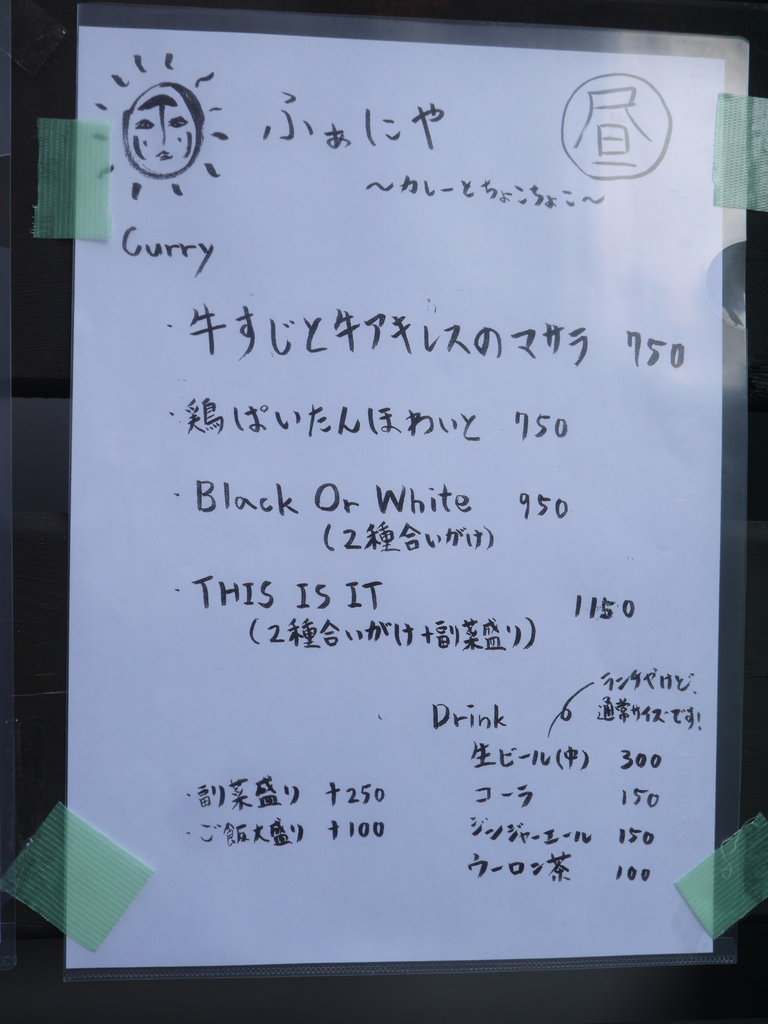 ふぁにや
昼
〜カレーとちょこちょこ〜
Curry
・牛すじと牛アキレスのマサラ 750
・鶏ぱいたんほわいと 750
・Black Or White 950
(2種合いがけ)
・THIS IS IT 1150
(2種合いがけ+副菜盛り)
ランチやけど、
通常サイズです!
Drink
生ビール(中) 300
コーラ 150
ジンジャーエール 150
ウーロン茶 100
・副菜盛り +250
・ご飯大盛り +100